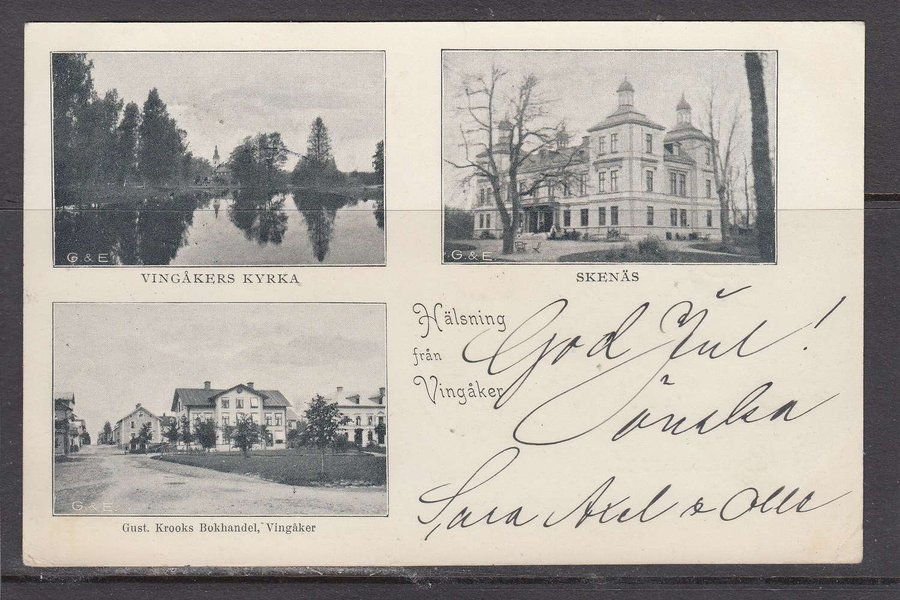 G & E.
VINGÅKERS KYRKA
G & E.
SKENÄS
G & E.
Gust. Krooks Bokhandel, Vingåker
Hälsning
från
Vingåker
God Jul!
Önska
Sara Axel & Olle